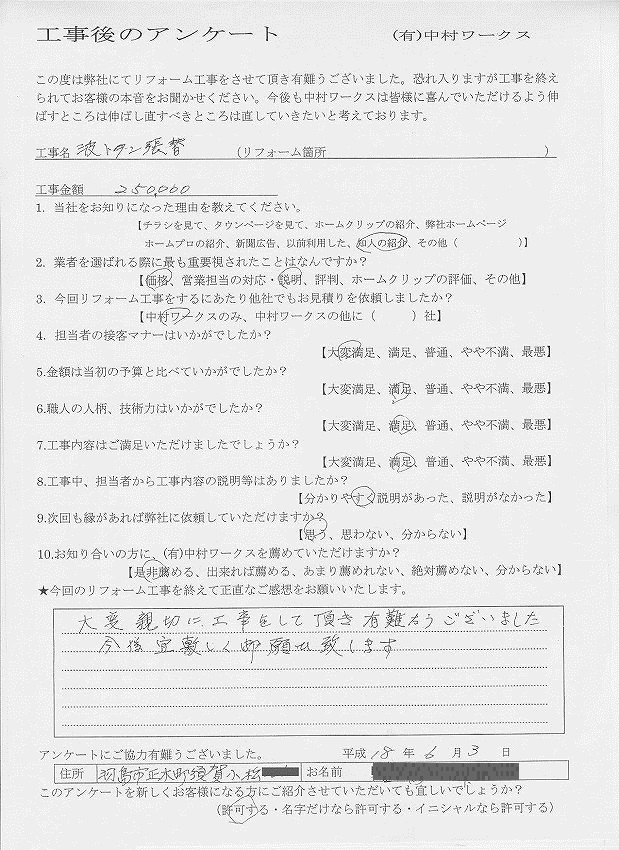 工事後のアンケート (有)中村ワークス
この度は弊社にてリフォーム工事をさせて頂き有難うございました。恐れ入りますが工事を終え
られてお客様の本音をお聞かせください。今後も中村ワークスは皆様に喜んでいただけるよう伸
ばすところは伸ばし直すべきところは直していきたいと考えております。
工事名 波トタン張替 (リフォーム箇所 )
工事金額 250,000
1. 当社をお知りになった理由を教えてください。
【チラシを見て、タウンページを見て、ホームクリップの紹介、弊社ホームページ
ホームプロの紹介、新聞広告、以前利用した、知人の紹介、その他（ ）】
2. 業者を選ばれる際に最も重要視されたことはなんですか？
【価格、営業担当の対応・説明、評判、ホームクリップの評価、その他】
3. 今回リフォーム工事をするにあたり他社でもお見積りを依頼しましたか？
【中村ワークスのみ、中村ワークスの他に（ ）社】
4. 担当者の接客マナーはいかがでしたか？
【大変満足、満足、普通、やや不満、最悪】
5.金額は当初の予算と比べていかがでしたか？
【大変満足、満足、普通、やや不満、最悪】
6.職人の人柄、技術力はいかがでしたか？
【大変満足、満足、普通、やや不満、最悪】
7.工事内容はご満足いただけましたでしょうか？
【大変満足、満足、普通、やや不満、最悪】
8.工事中、担当者から工事内容の説明等はありましたか？
【分かりやすく説明があった、説明がなかった】
9.次回も縁があれば弊社に依頼していただけますか？
【思う、思わない、分からない】
10.お知り合いの方に、(有)中村ワークスを薦めていただけますか？
【是非薦める、出来れば薦める、あまり薦めれない、絶対薦めない、分からない】
★今回のリフォーム工事を終えて正直なご感想をお願いいたします。
大変親切に工事をして頂き有難うございました
今後宜敷しく御願い致します
アンケートにご協力有難うございました。 平成 18 年 6 月 3 日
住所 羽島市正木町須賀小松 お名前
このアンケートを新しくお客様になる方にご紹介させていただいても宜しいでしょうか？
（許可する・名字だけなら許可する・イニシャルなら許可する）